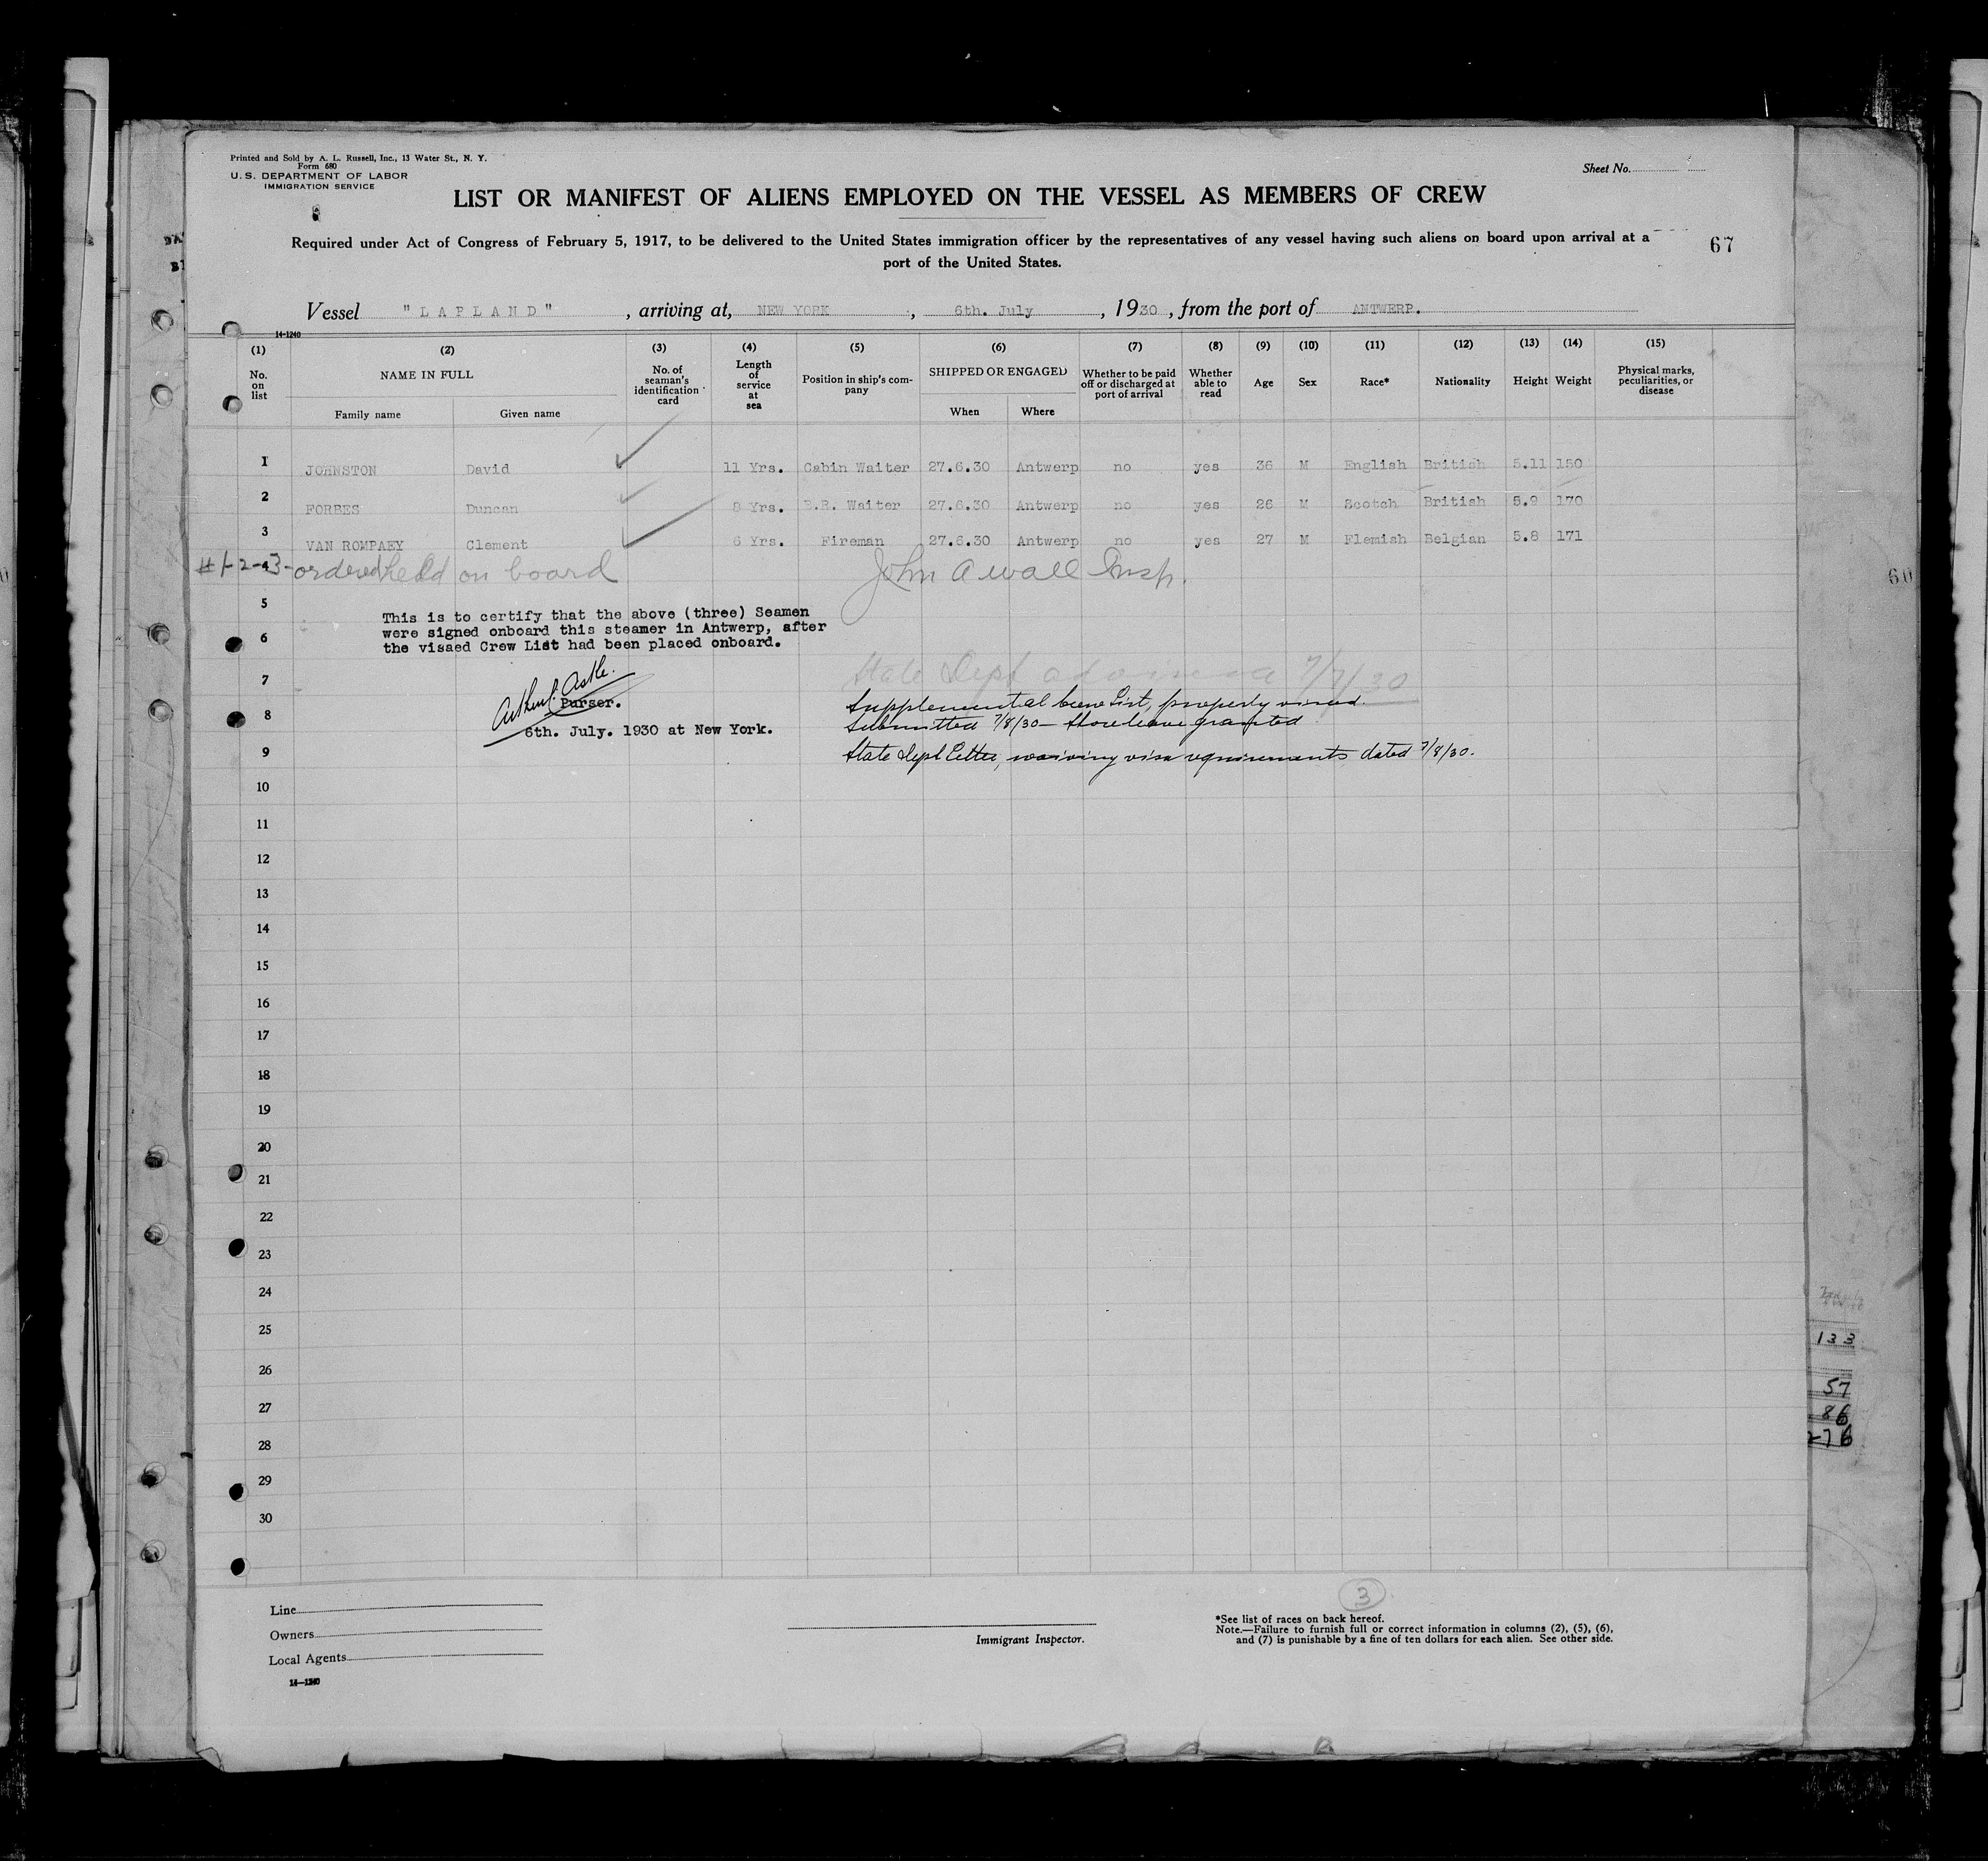 Printed and Sold by A. L. Russell, Inc., 13 Water St., N. Y.
Form 680
U. S. DEPARTMENT OF LABOR
IMMIGRATION SERVICE
Sheet No.
LIST OR MANIFEST OF ALIENS EMPLOYED ON THE VESSEL AS MEMBERS OF CREW
Required under Act of Congress of February 5, 1917, to be delivered to the United States immigration officer by the representatives of any vessel having such aliens on board upon arrival at a
port of the United States.
67
Vessel "LAPLAND", arriving at, NEW YORK, 6th. July, 1930, from the port of ANTWERP.
14-1240
(1) (2) (3) (4) (5) (6) (7) (8) (9) (10) (11) (12) (13) (14) (15)
No. on list NAME IN FULL No. of seaman's identification card Length of service at sea Position in ship's company SHIPPED OR ENGAGED Whether to be paid off or discharged at port of arrival Whether able to read Age Sex Race* Nationality Height Weight Physical marks, peculiarities, or disease
Family name Given name When Where
1 JOHNSTON David 11 Yrs. Cabin Waiter 27.6.30 Antwerp no yes 36 M English British 5.11 150
2 FORBES Duncan 8 Yrs. B.R. Waiter 27.6.30 Antwerp no yes 26 M Scotch British 5.9 170
3 VAN ROMPAEY Clement 6 Yrs. Fireman 27.6.30 Antwerp no yes 27 M Flemish Belgian 5.8 171
#1-2-3- ordered held on board John A Wall Insp.
60
5
This is to certify that the above (three) Seamen
were signed onboard this steamer in Antwerp, after
6
the visaed Crew List had been placed onboard.
7
State Dept 7/7/30
Arthur Astle.
Purser.
Supplemental Crew List, properly visaed
8
Submitted 7/8/30 - Shore leave granted
6th. July. 1930 at New York.
9
State Dept Letter, waiving visa requirements dated 7/8/30.
10
11
12
13
14
15
16
17
18
19
20
21
22
23
24
25
26
27
28
29
30
133
57
86
276
3
Line
Owners
Local Agents
14-1240
Immigrant Inspector.
*See list of races on back hereof.
Note.—Failure to furnish full or correct information in columns (2), (5), (6),
and (7) is punishable by a fine of ten dollars for each alien. See other side.